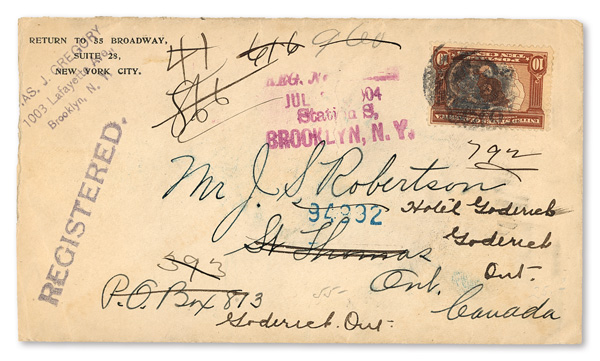 RETURN TO 35 BROADWAY,
SUITE 28,
NEW YORK CITY.
AS. J. GREGORY
1003 Lafayette Av.
Brooklyn, N.
REGISTERED.
41 616 960
866
REG. N
JUL 1904
Station S,
BROOKLYN, N.Y.
10 10
792
Mr J. S Robertson
94932
Hotel Goderich
St Thomas
Goderich
Ont.
Ont.
593
P.O. Box 873
55-
Canada
Goderich Ont.